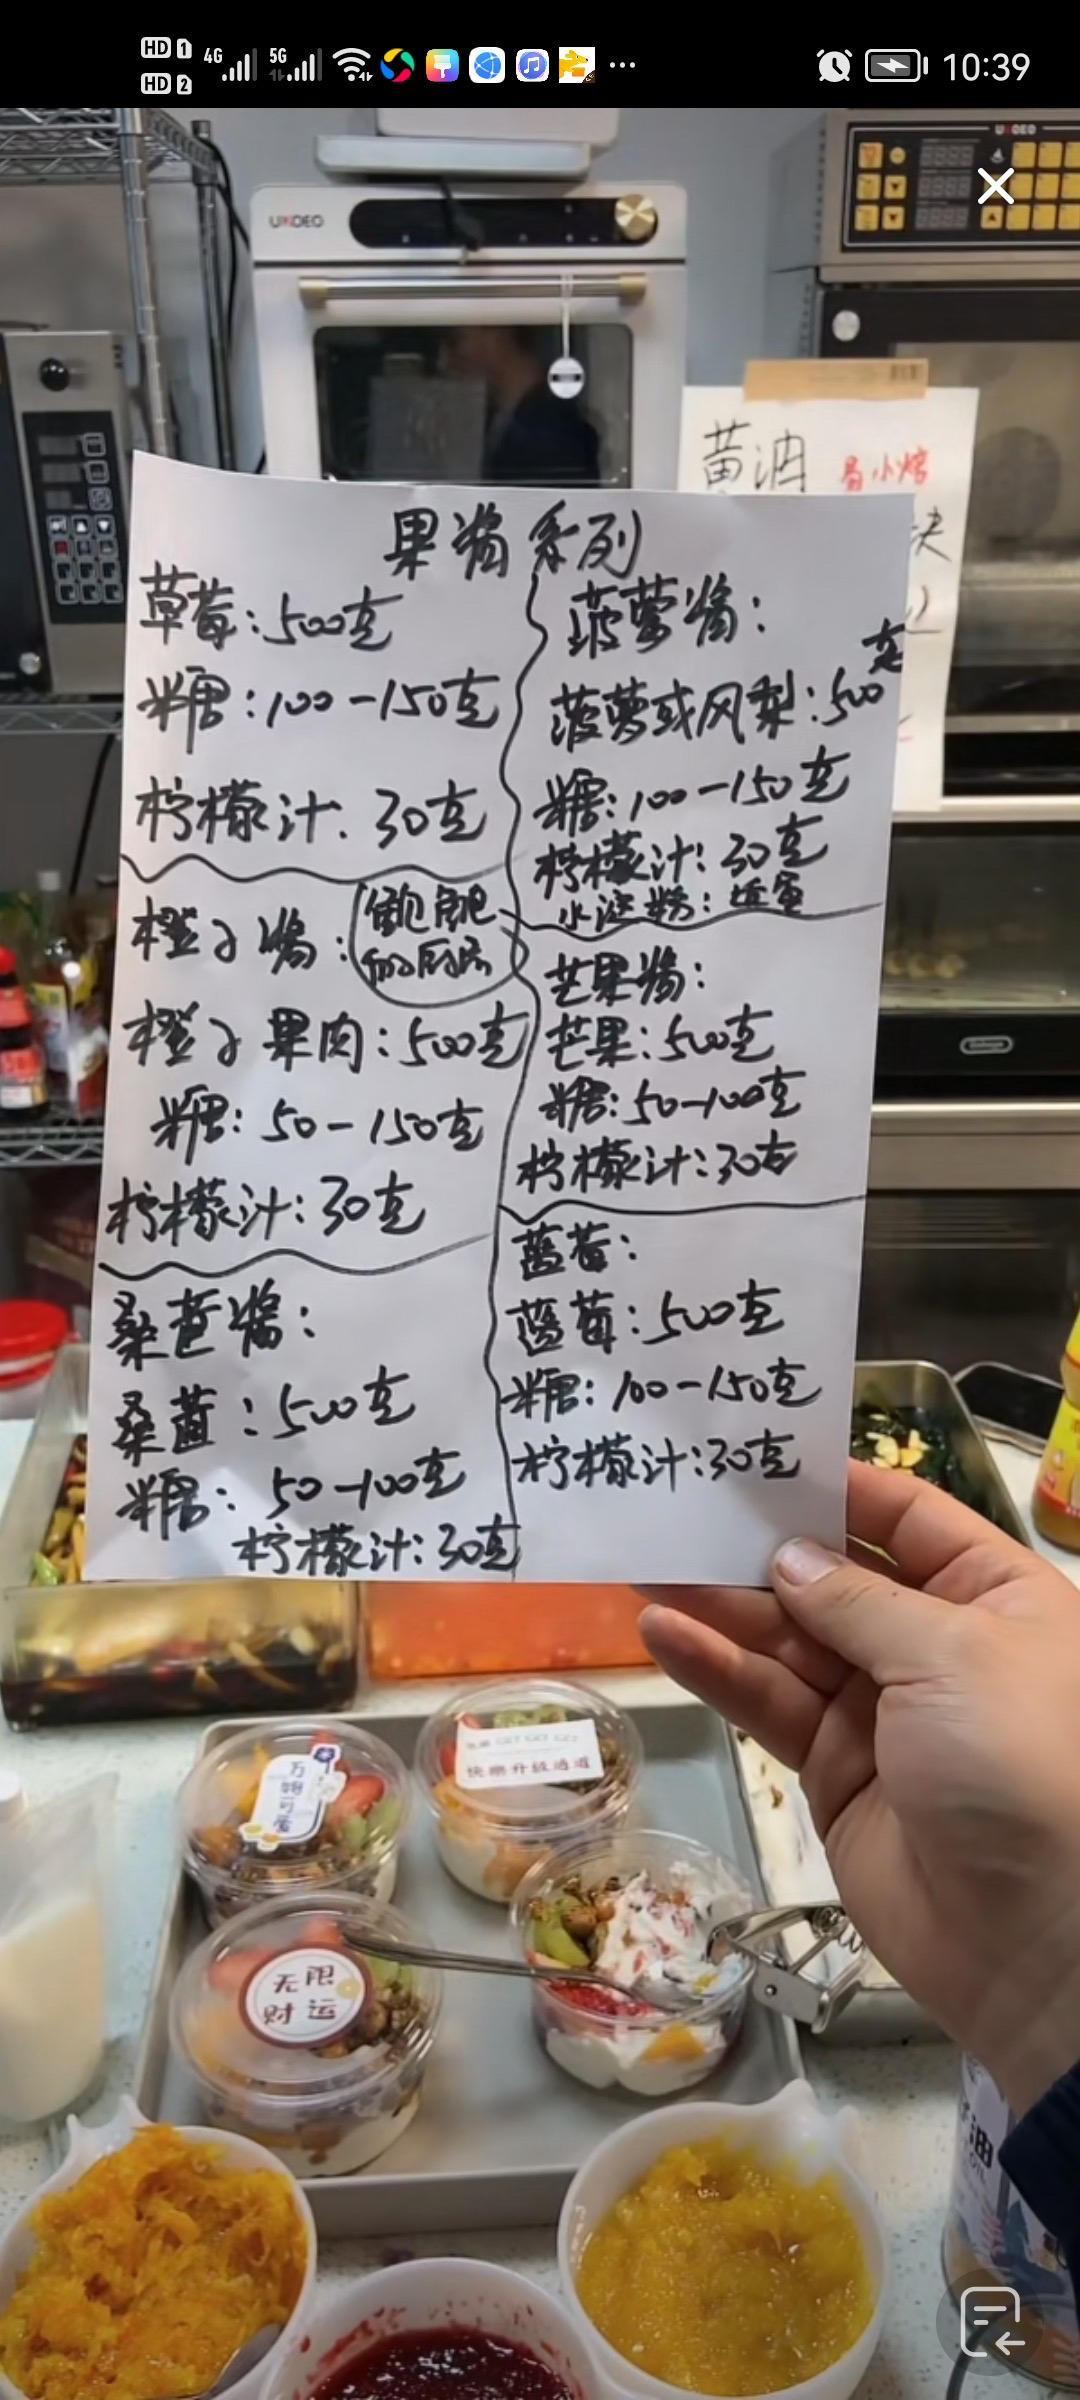 HD 1
HD 2
4G
5G
10:39
UKOEO
UKOEO
黄油
果酱系列
草莓:500克
糖:100-150克
柠檬汁.30克
橙子酱:
鲍鲍
的厨房
橙子果肉:500克
糖:50-150克
柠檬汁:30克
桑葚酱:
桑葚:500克
糖:50-100克
柠檬汁:30克
菠萝酱:
菠萝或风梨:500克
糖:100-150克
柠檬汁:30克
水淀粉:适量
芒果酱:
芒果:500克
糖:50-100克
柠檬汁:30克
蓝莓:
蓝莓:500克
糖:100-150克
柠檬汁:30克
万物可爱
快乐升级通道
无限
财运
油